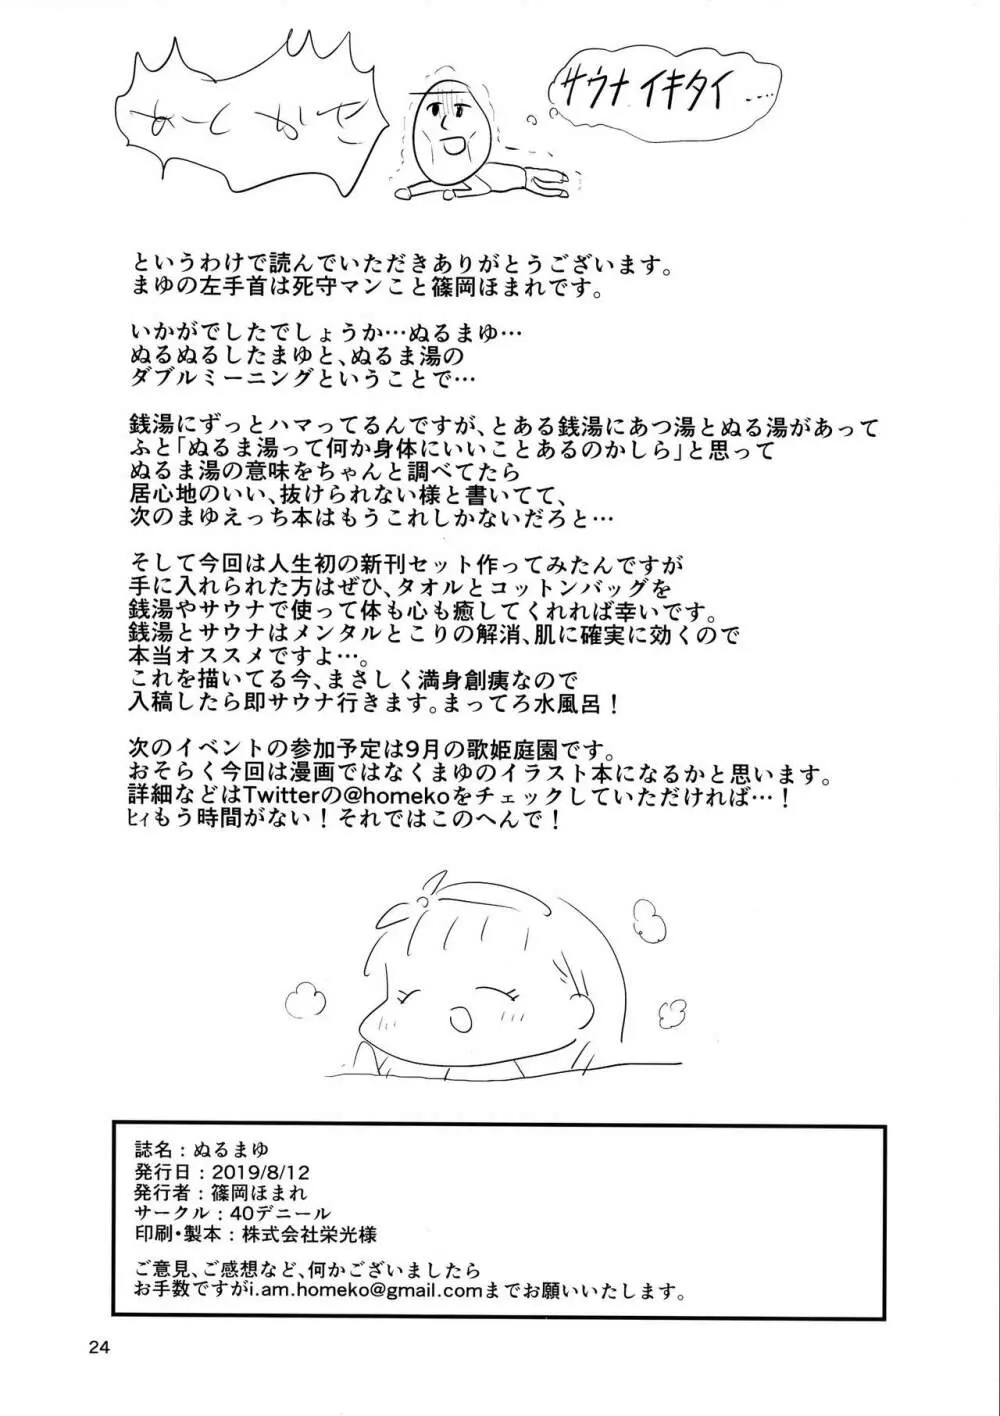 あとがき
サウナイキタイ……
というわけで読んでいただきありがとうございます。
まゆの左手首は死守マンこと篠岡ほまれです。
いかがでしたでしょうか…ぬるまゆ…
ぬるぬるしたまゆと、ぬるま湯の
ダブルミーニングということで…
銭湯にずっとハマってるんですが、とある銭湯にあつ湯とぬる湯があって
ふと「ぬるま湯って何か身体にいいことあるのかしら」と思って
ぬるま湯の意味をちゃんと調べてたら
居心地のいい、抜けられない様と書いてて、
次のまゆえっち本はもうこれしかないだろと…
そして今回は人生初の新刊セット作ってみたんですが
手に入れられた方はぜひ、タオルとコットンバッグを
銭湯やサウナで使って体も心も癒してくれれば幸いです。
銭湯とサウナはメンタルとこりの解消、肌に確実に効くので
本当オススメですよ…。
これを描いてる今、まさしく満身創痍なので
入稿したら即サウナ行きます。まってろ水風呂！
次のイベントの参加予定は9月の歌姫庭園です。
おそらく今回は漫画ではなくまゆのイラスト本になるかと思います。
詳細などはTwitterの@homekoをチェックしていただければ…！
ﾋｨもう時間がない！それではこのへんで！
誌名：ぬるまゆ
発行日：2019/8/12
発行者：篠岡ほまれ
サークル：40デニール
印刷・製本：株式会社栄光様
ご意見、ご感想など、何かございましたら
お手数ですがi.am.homeko@gmail.comまでお願いいたします。
24